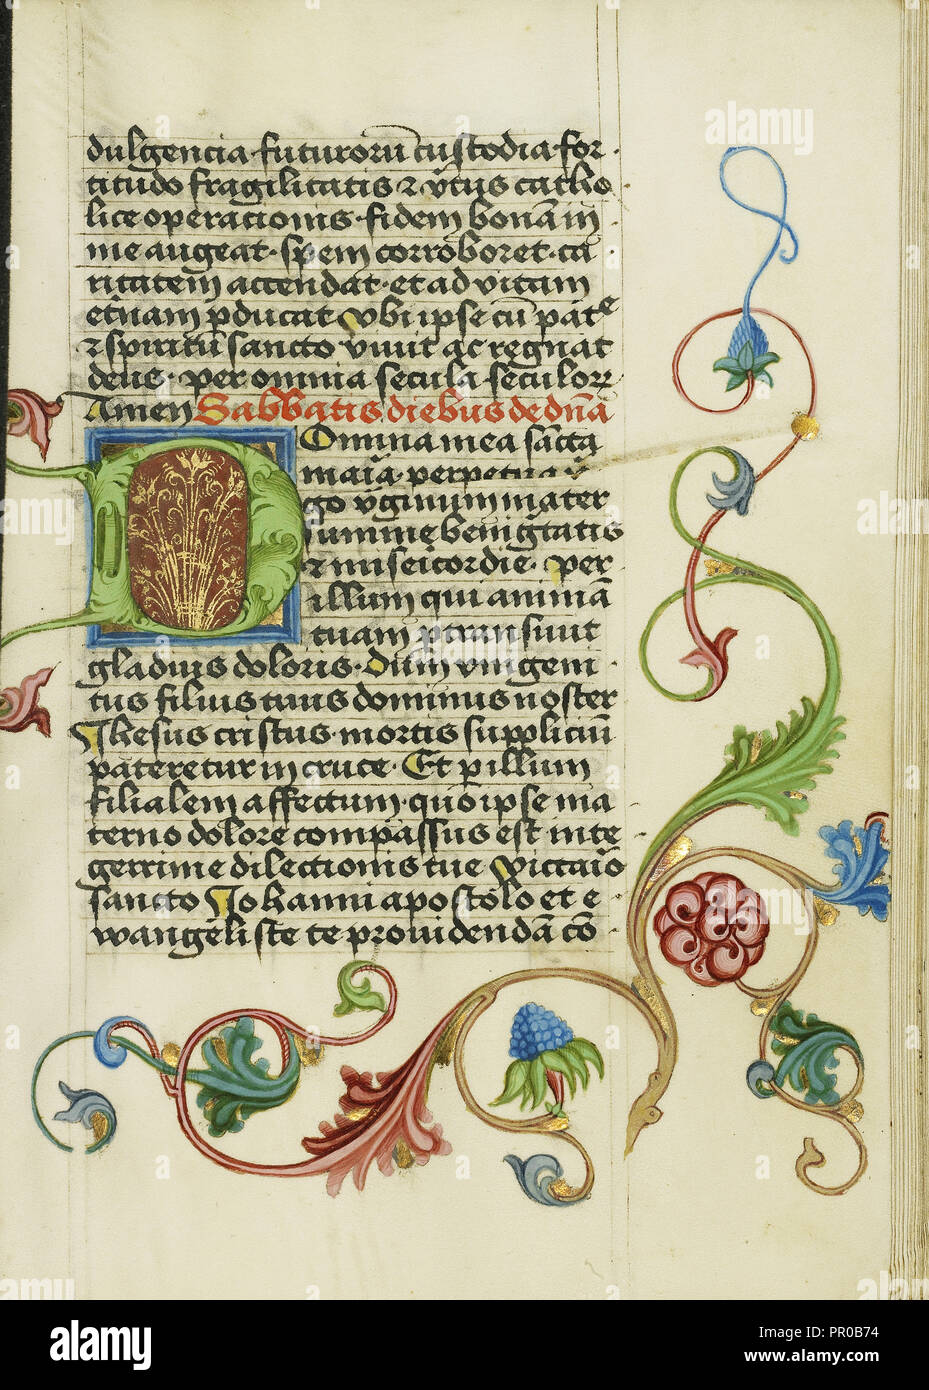 dulgencia · futurorū custodia · for
titudo fragilitatis ⁊ v̄tus catho
lice operationis · fidem bonā in
me augeat · spem corroboret · ca
ritatem accendat · et ad vitam
et̄nam ꝑducat · Vbi ipse cū patͤ
⁊ spiritū sancto vivit ac regnat
deus · per omnia secula seculoꝝ
Amen Sabbatis diebus de dn̄a
Domina mea sācta
maīa · perpetua v
go v̄ginum mater
summe benigtatis
⁊ misericordie · Per
illum qui animā
tuam ꝑtransiuit
gladius doloris · Dum vnigeni
tus filius tuus dominus noster
Ihesus cristus · mortis suppliciū
pateretur in cruce · Et ꝑ illum
filialem affectum · quo ipse ma
terno dolore compassus est inte
gerrime dilectionis tue
sancto Johanni apostolo et e
wangeliste te prouidendā cō
alamy
alamy
Image ID: PR0B74
www.alamy.com